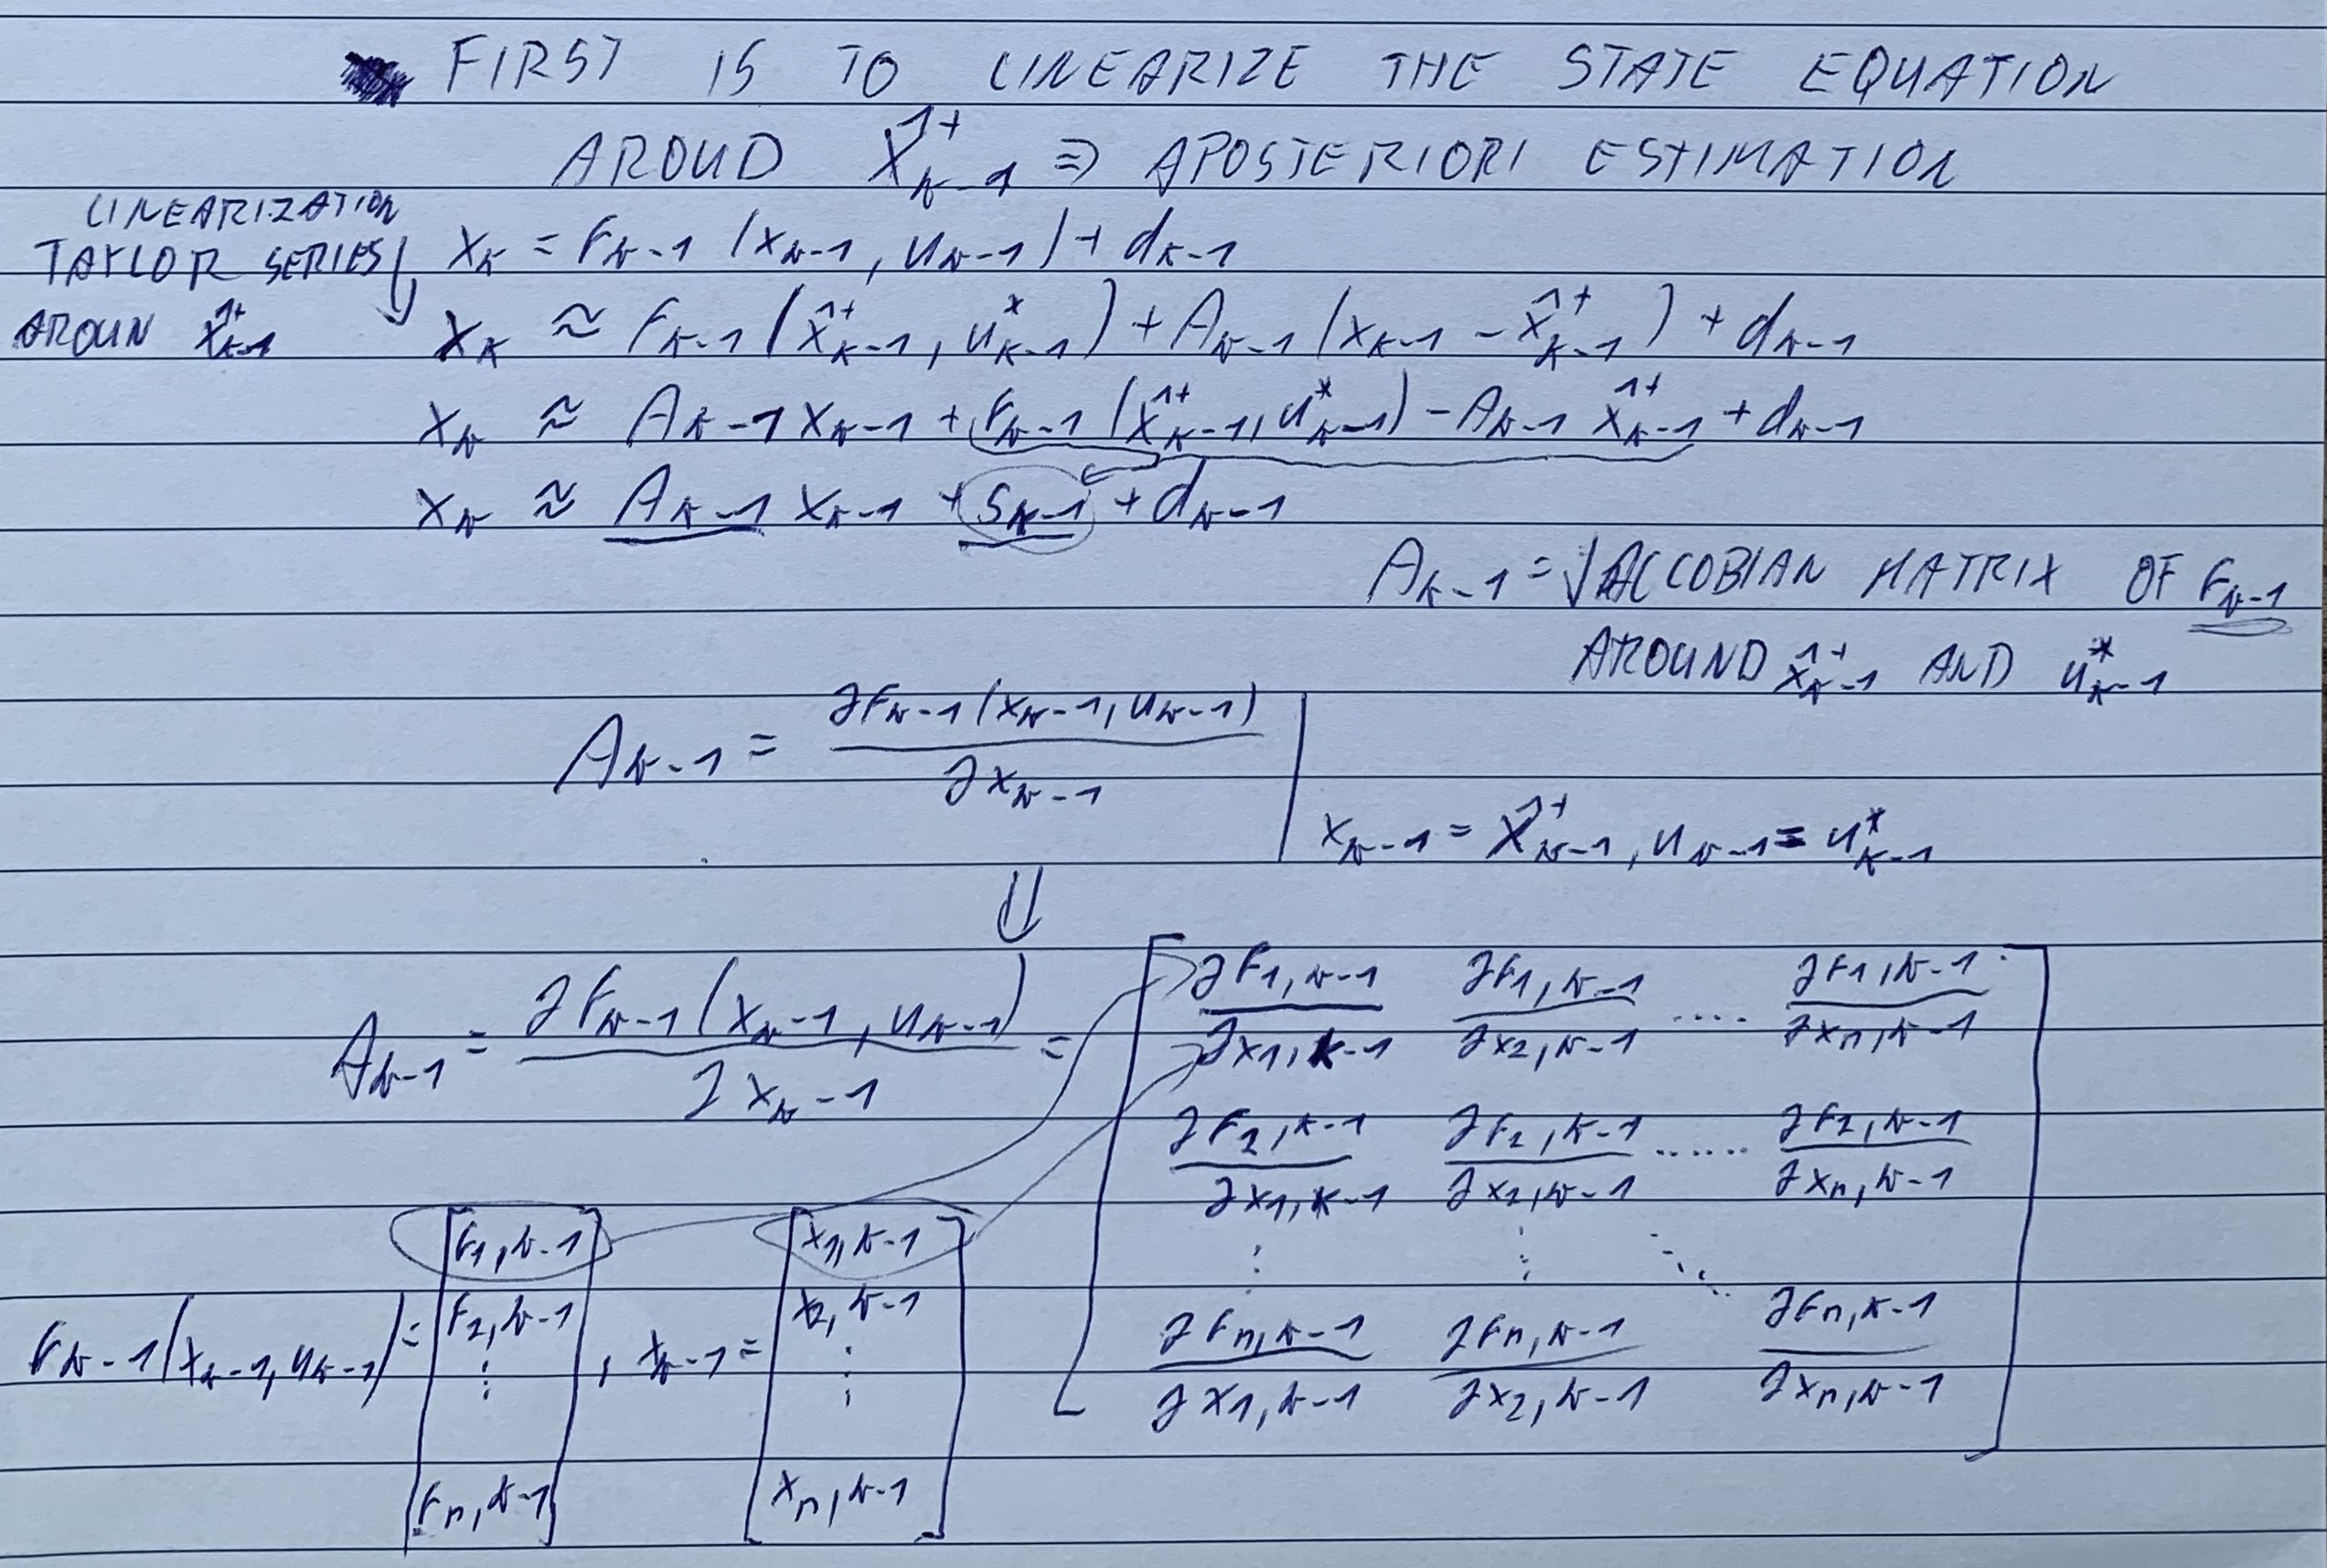 FIRST IS TO LINEARIZE THE STATE EQUATION
AROUD x̂⁺ₖ₋₁ ⇒ APOSTERIORI ESTIMATION
LINEARIZATION
TAYLOR SERIES
AROUN x̂⁺ₖ₋₁
xₖ = Fₖ₋₁ (xₖ₋₁, uₖ₋₁) + dₖ₋₁
xₖ ≈ Fₖ₋₁ (x̂⁺ₖ₋₁, u*ₖ₋₁) + Aₖ₋₁ (xₖ₋₁ - x̂⁺ₖ₋₁) + dₖ₋₁
xₖ ≈ Aₖ₋₁ xₖ₋₁ + Fₖ₋₁ (x̂⁺ₖ₋₁, u*ₖ₋₁) - Aₖ₋₁ x̂⁺ₖ₋₁ + dₖ₋₁
xₖ ≈ Aₖ₋₁ xₖ₋₁ + sₖ₋₁ + dₖ₋₁
Aₖ₋₁ = JACCOBIAN MATRIX OF Fₖ₋₁
AROUND x̂⁺ₖ₋₁ AND u*ₖ₋₁
Aₖ₋₁ = ∂Fₖ₋₁(xₖ₋₁, uₖ₋₁) / ∂xₖ₋₁ |
xₖ₋₁ = x̂⁺ₖ₋₁, uₖ₋₁ = u*ₖ₋₁
⇓
Aₖ₋₁ = ∂Fₖ₋₁(xₖ₋₁, uₖ₋₁) / ∂xₖ₋₁ =
∂F1,k-1 / ∂x1,k-1 ∂F1,k-1 / ∂x2,k-1 .... ∂F1,k-1 / ∂xn,k-1
∂F2,k-1 / ∂x1,k-1 ∂F2,k-1 / ∂x2,k-1 ...... ∂F2,k-1 / ∂xn,k-1
⋮ ⋮ ⋱
∂Fn,k-1 / ∂x1,k-1 ∂Fn,k-1 / ∂x2,k-1 ∂Fn,k-1 / ∂xn,k-1
Fₖ₋₁(xₖ₋₁, uₖ₋₁) =
F1,k-1
F2,k-1
⋮
Fn,k-1
, xₖ₋₁ =
x1,k-1
x2,k-1
⋮
xn,k-1